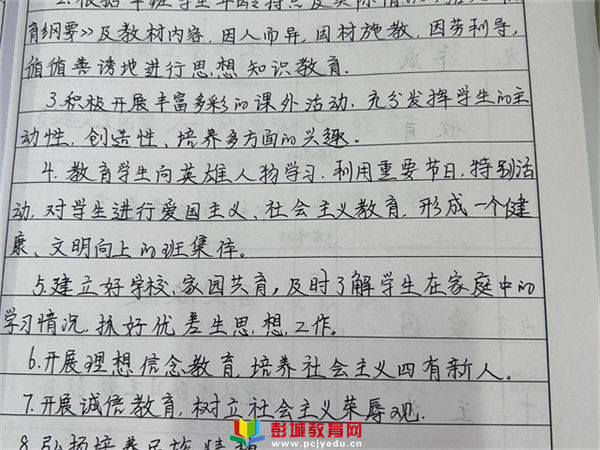 2.根据本班学生年龄特点及实际情况
育纲要》及教材内容,因人而异,因材施教,因势利导,
循循善诱地进行思想知识教育.
3.积极开展丰富多彩的课外活动,充分发挥学生的主
动性,创造性、培养多方面的兴趣。
4.教育学生向英雄人物学习,利用重要节日,特别活
动,对学生进行爱国主义、社会主义教育,形成一个健
康、文明向上的班集体。
5.建立好学校、家园共育,及时了解学生在家庭中的
学习情况,抓好优差生思,想,工作。
6.开展理想信念教育,培养社会主义四有新人。
7.开展诚信教育,树立社会主义荣辱观.
8.弘扬培养民族精神
彭城教育网
www.pcjyedu.cn